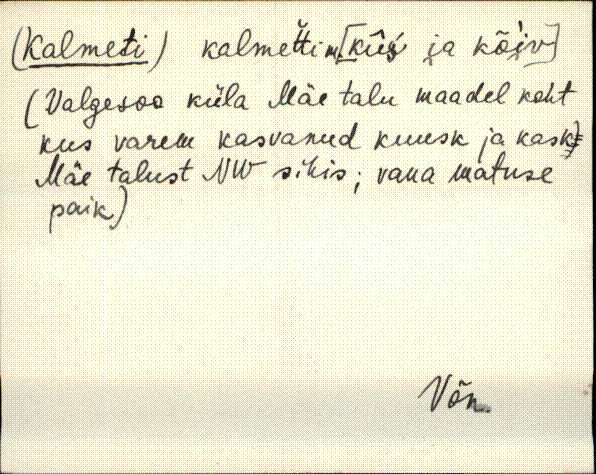 (Kalmeti) kalmettim [kûś ja kõiv]
(Valgesoo küla Mäe talu maadel koht
kus varem kasvanud kuusk ja kask;
Mäe talust NW sihis; vana matuse
paik)
Võn.